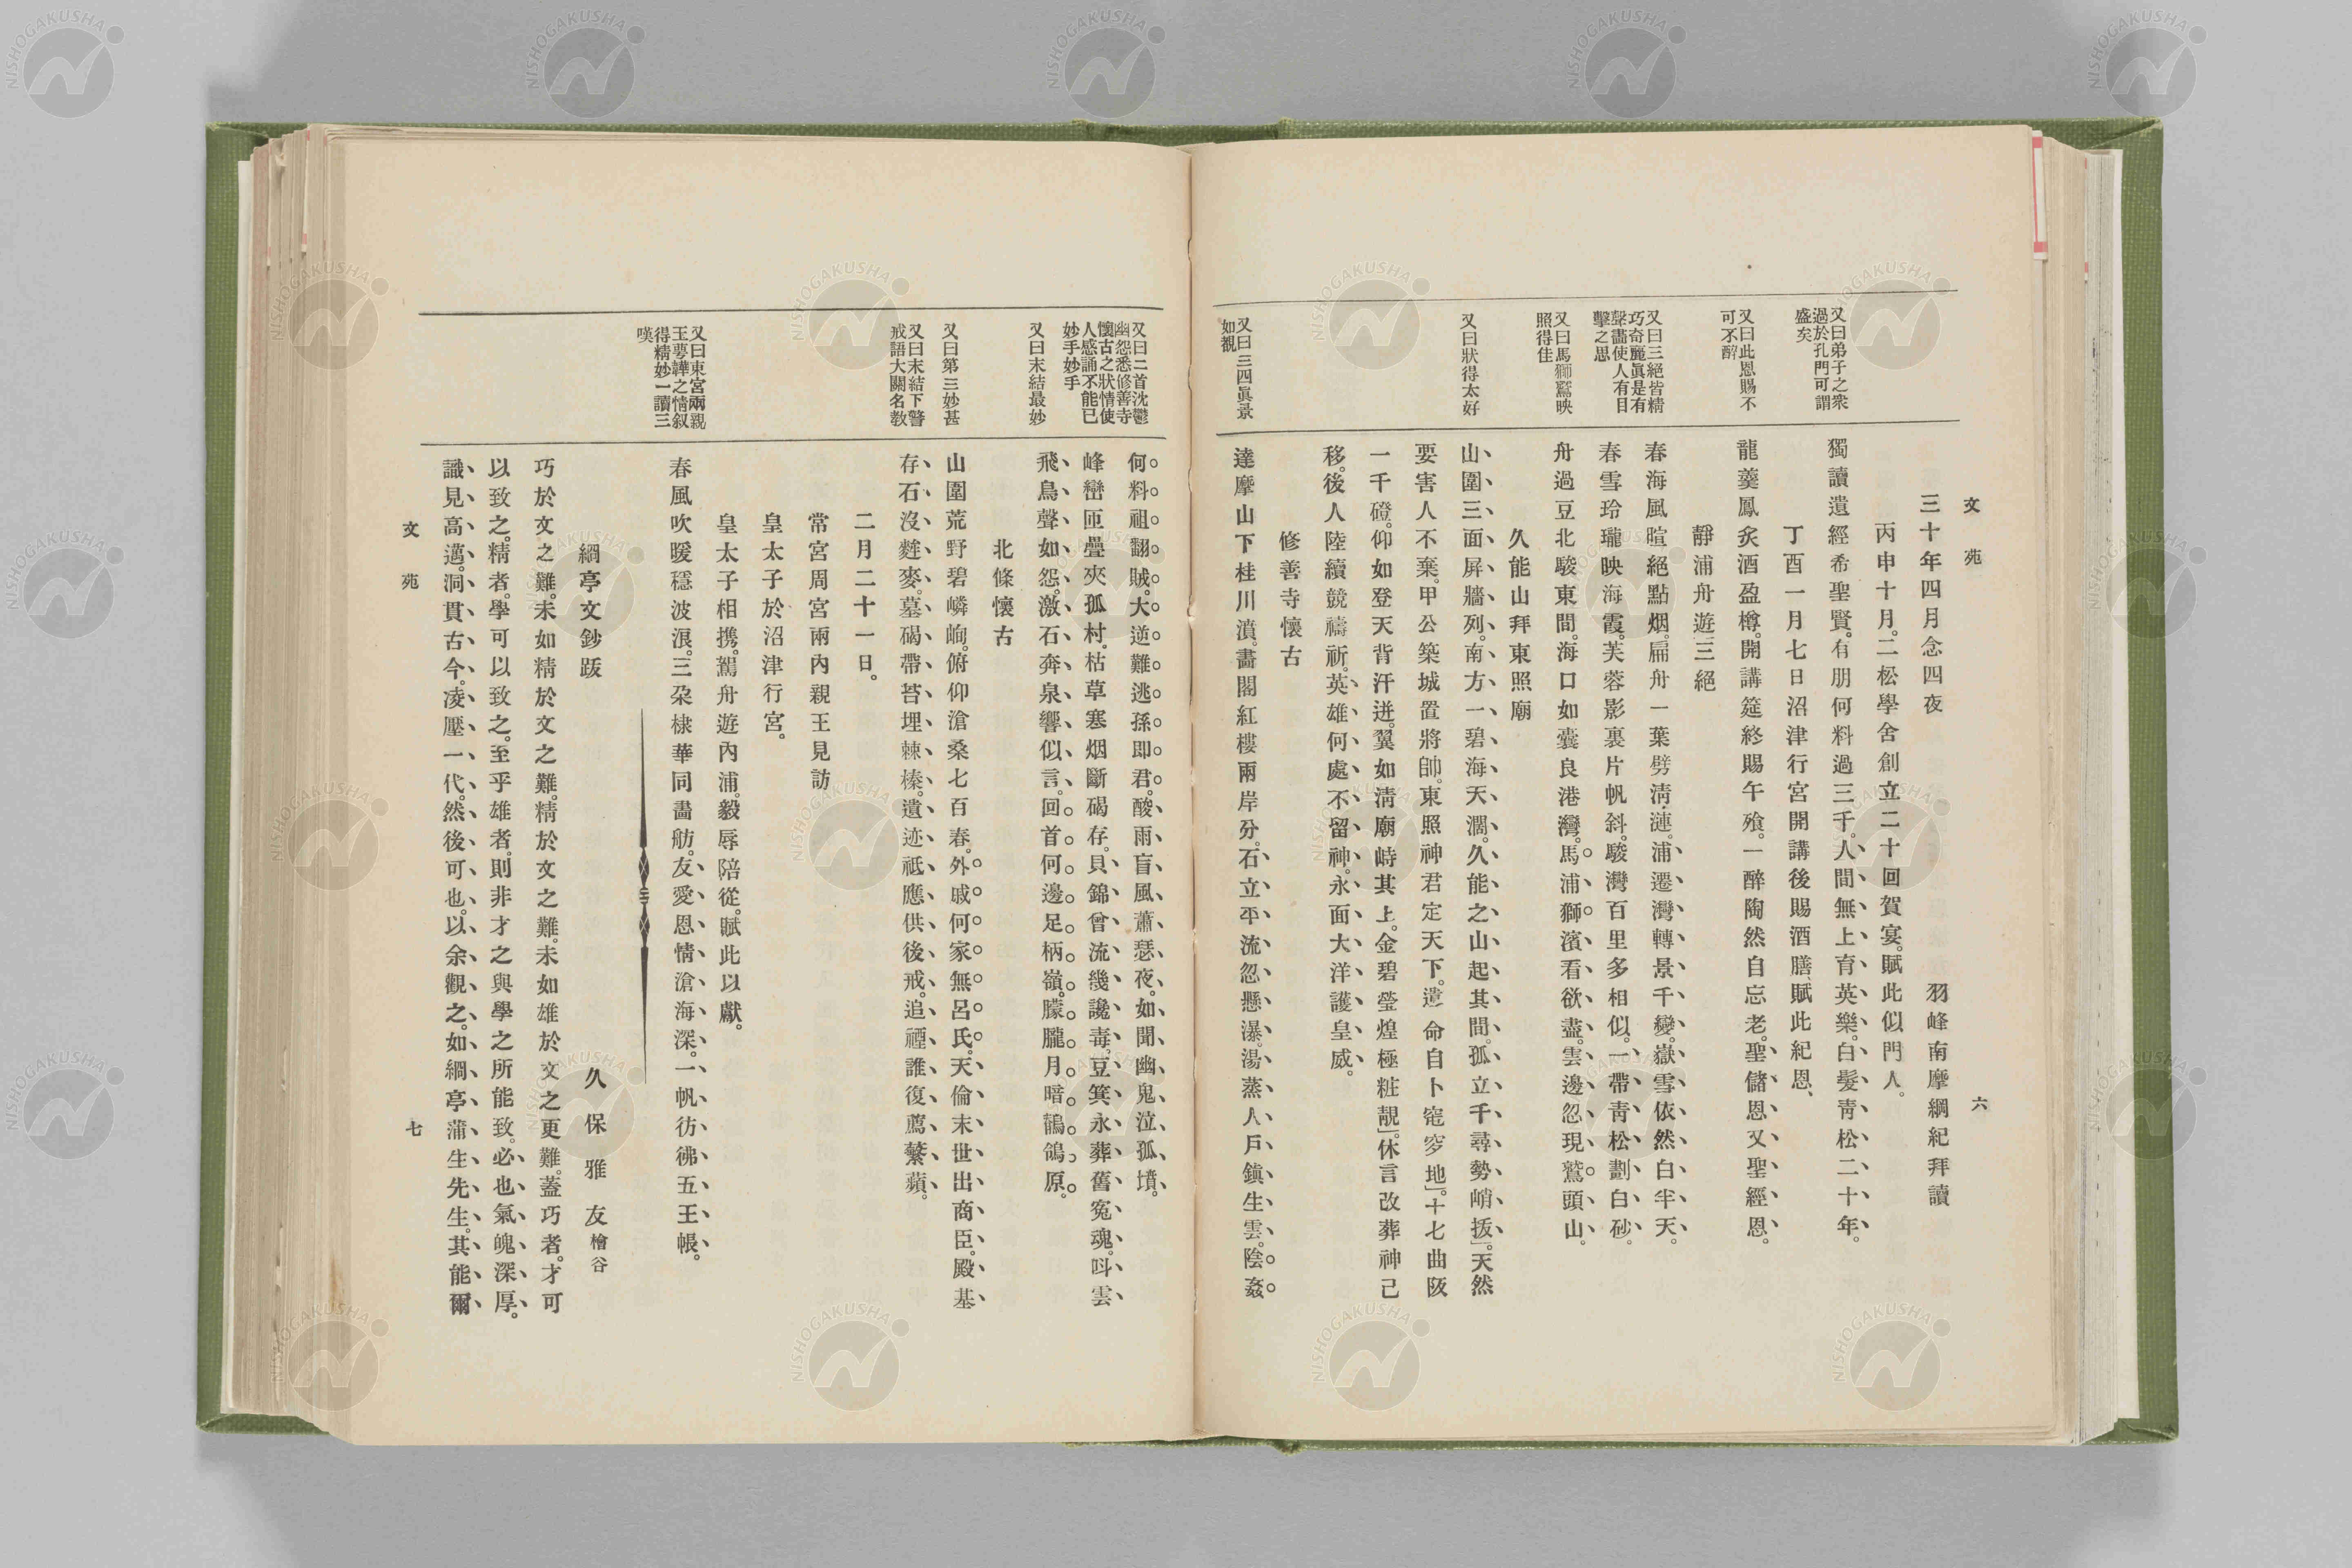 文苑
六
三十年四月念四夜 羽峰南摩綱紀拜讀
丙申十月。二松學舍創立二十回賀宴。賦此似門人。
獨讀遺經希聖賢。有朋何料過三千。人間無上育英樂。白髮靑松二十年。
又曰弟子之衆
過於孔門可謂
盛矣
丁酉一月七日沼津行宮開講後賜酒膳、賦此紀恩、
龍羹鳳炙酒盈樽。開講筵終賜午飱。一醉陶然自忘老。聖儲恩又聖經恩。
又曰此恩賜不
可不醉
靜浦舟遊三絕
春海風暄絕點烟。扁舟一葉劈淸漣。浦遷灣轉景千變。嶽雪依然白半天。
又曰三絕皆精
巧奇麗眞是有
聲畵使人有目
擊之思
春雪玲瓏映海霞。芙蓉影裏片帆斜。駿灣百里多相似。一帶靑松劃白砂。
舟過豆北駿東間。海口如囊良港灣。馬浦獅濱看欲盡。雲邊忽現鷲頭山。
又曰馬獅鷲映
照得佳
久能山拜東照廟
山圍三面屏牆列。南方一碧海天濶。久能之山起其間。孤立千尋勢峭拔」。天然
又曰狀得太好
要害人不棄。甲公築城置將帥。東照神君定天下。遺命自卜窀穸地」。十七曲阪
一千磴。仰如登天背汗迸。翼如淸廟峙其上。金碧瑩煌極粧靚」。休言改葬神已
移。後人陸續競禱祈。英雄何處不留神。永面大洋護皇威。
修善寺懷古
達摩山下桂川濆。畵閣紅樓兩岸分。石立平流忽懸瀑。湯蒸人戶鎭生雲。陰姦
又曰三四眞景
如觀
何料祖翻賊。大逆難逃孫即君。酸雨盲風蕭瑟夜。如聞幽鬼泣孤墳。
又曰二首沈鬱
幽怨悉修善寺
懷古之狀情使
人感誦不能已
妙手妙手
峰巒匝疊夾孤村。枯草塞烟斷碣存。貝錦曾流幾讒毒。豆箕永葬舊寃魂。呌雲
飛鳥聲如怨。激石奔泉響似言。回首何邊足柄嶺。朦朧月暗鶺鴒原。
又曰末結最妙
北條懷古
山圍荒野碧嶙峋。俯仰滄桑七百春。外戚何家無呂氏。天倫末世出商臣。殿基
又曰第三妙甚
存石沒蕤麥。墓碣帶苔埋棘榛。遺迹祗應供後戒。追禋誰復薦蘩蘋。
又曰末結下警
戒語大關名敎
二月二十一日。
常宮周宮兩內親王見訪
皇太子於沼津行宮。
皇太子相携。駕舟遊內浦。毅辱陪從。賦此以獻。
春風吹暖穩波浪。三朶棣華同畵舫。友愛恩情滄海深。一帆彷彿五王帳。
又曰東宮兩親
王萼韡之情叙
得精妙一讀三
嘆
綱亭文鈔跋
久保雅友檜谷
巧於文之難。未如精於文之難。精於文之難。未如雄於文之更難。蓋巧者。才可
以致之。精者。學可以致之。至乎雄者。則非才之與學之所能致。必也氣魄深厚。
識見高邁。洞貫古今。凌壓一代。然後可也。以余觀之。如綱亭蒲生先生。其能爾
文苑
七